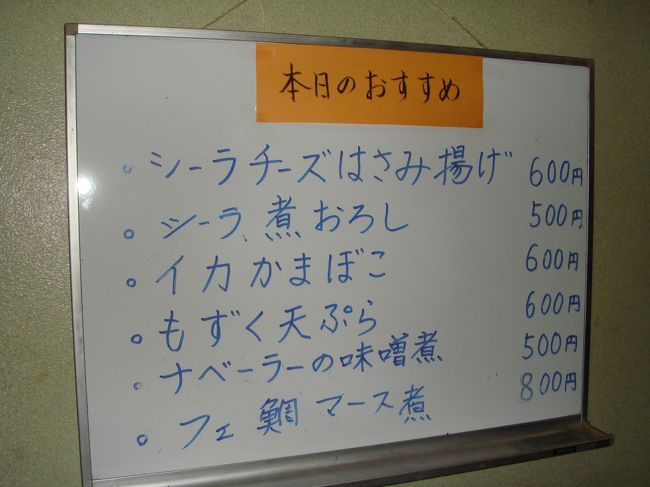 本日のおすすめ
。シーラチーズはさみ揚げ 600円
。シーラ煮おろし 500円
。イカかまぼこ 600円
。もずく天ぷら 600円
。ナベーラーの味噌煮 500円
。フェ鯛マース煮 800円